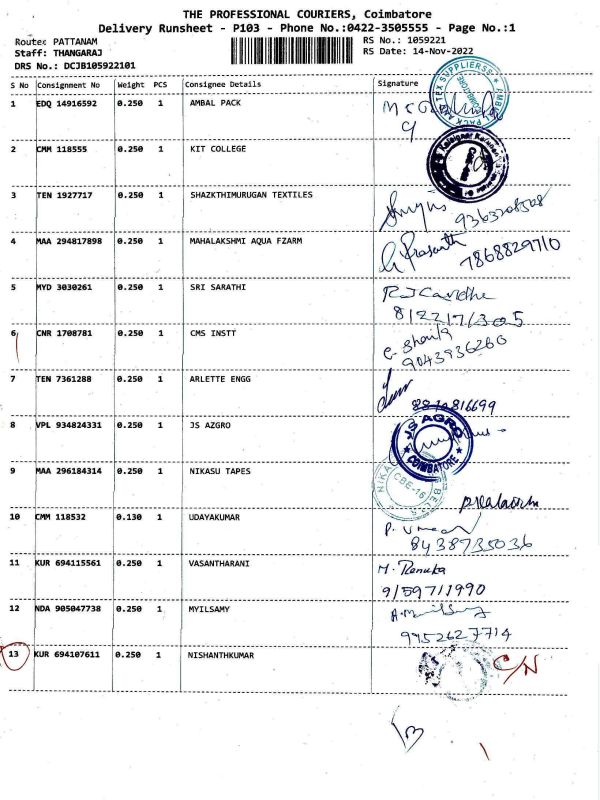 THE PROFESSIONAL COURIERS, Coimbatore
Delivery Runsheet - P103 - Phone No.:0422-3505555 - Page No.:1
Route: PATTANAM
RS No.: 1059221
Staff: THANGARAJ
RS Date: 14-Nov-2022
DRS No.: DCJB105922101
S No Consignment No Weight PCS Consignee Details Signature
1 EDQ 14916592 0.250 1 AMBAL PACK
2 CMM 118555 0.250 1 KIT COLLEGE
3 TEN 1927717 0.250 1 SHAZKTHIMURUGAN TEXTILES
4 MAA 294817898 0.250 1 MAHALAKSHMI AQUA FZARM
G Prasanth
7868829710
5 MYD 3030261 0.250 1 SRI SARATHI
6 CNR 1708781 0.250 1 CMS INSTT
9043936260
7 TEN 7361288 0.250 1 ARLETTE ENGG
8870816699
8 VPL 934824331 0.250 1 JS AZGRO
JS AGRO
COIMBATORE
9 MAA 296184314 0.250 1 NIKASU TAPES
CBE-16
10 CMM 118532 0.130 1 UDAYAKUMAR
8438735036
11 KUR 694115561 0.250 1 VASANTHARANI
M. Renuka
9159711990
12 NDA 905047738 0.250 1 MYILSAMY
9952627714
13 KUR 694107611 0.250 1 NISHANTHKUMAR
C/N
13